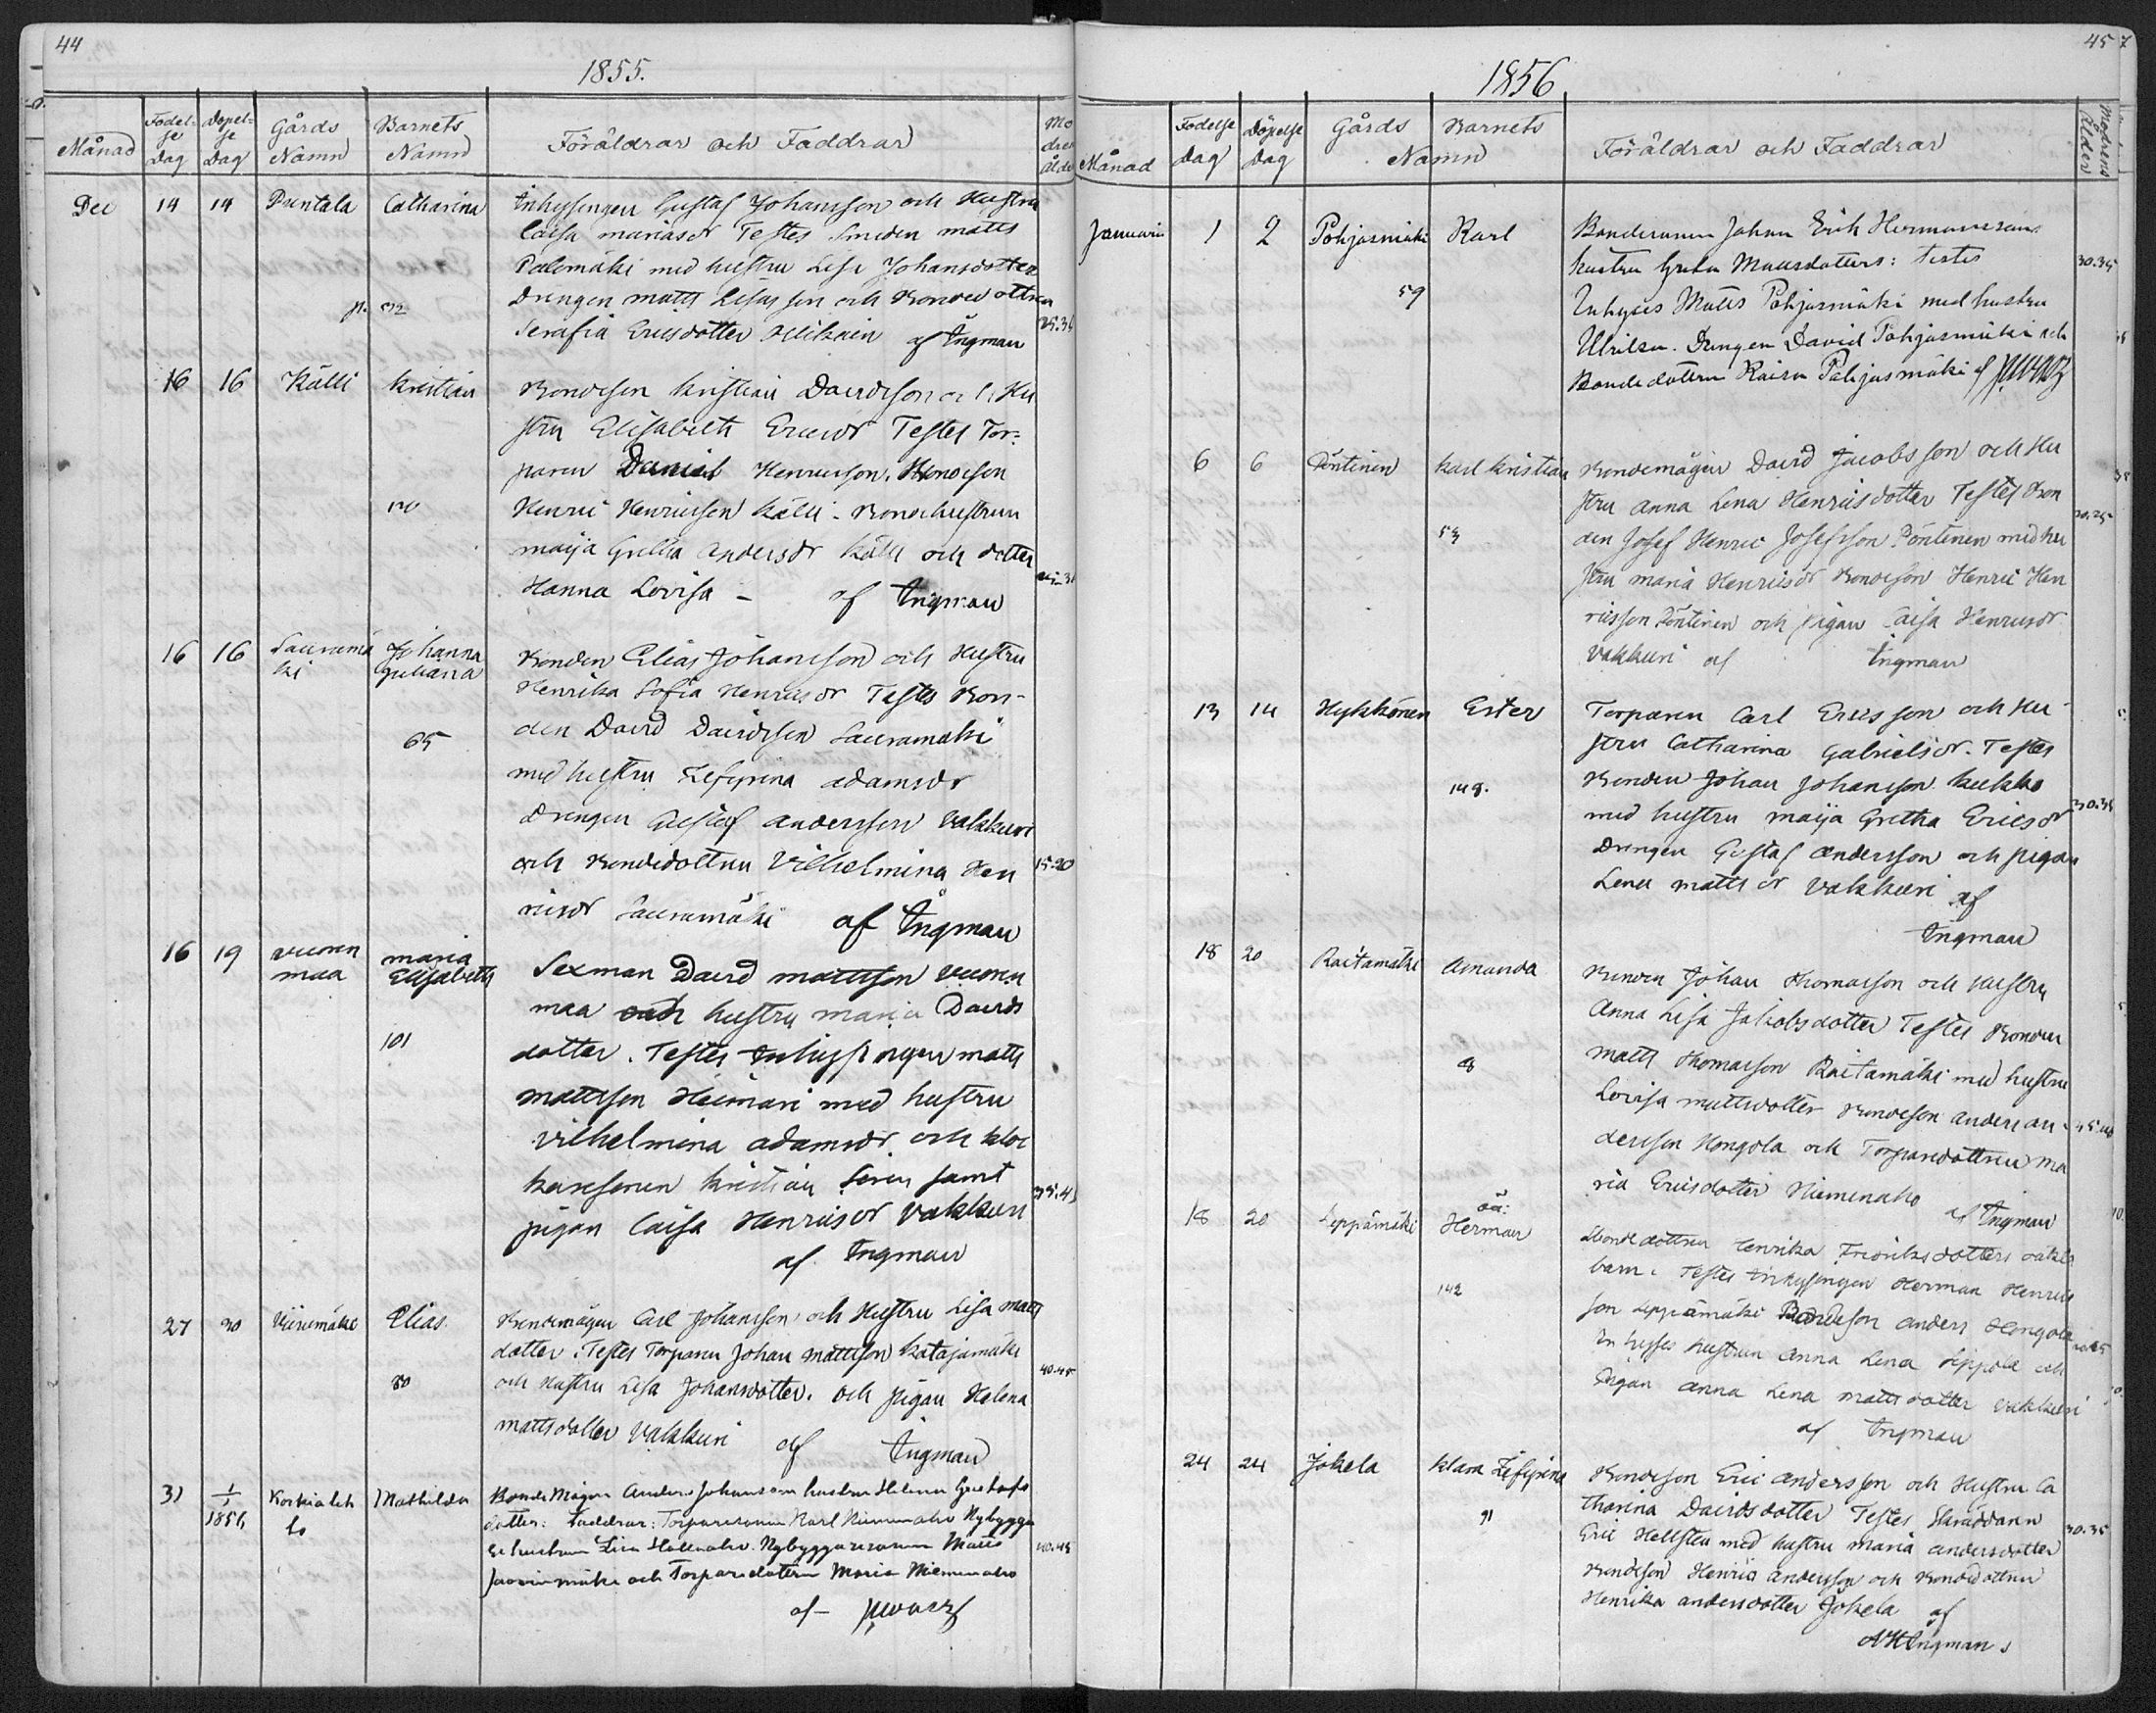 44
1855.
Månad
Födel-
se
Dag
Döpel-
se
Dag
Gårds
Namn
Barnets
Namn
Föräldrar och Faddrar
Mo
dren
ålde
Dec 14 14 Puntala Catharina Inhysingen Gustaf Johansson och Hustru
Caisa mariasdr Testes Smeden matts
Palomäki med hustru Lisa Johansdotter
Drengen matts Esaysson och Bondedottren
Serafia Ericsdotter af Ingman
16 16 Källi Kristian Bondeson Kristian Davidsson och Hu
stru Elisabeth Ericsdr Testes Tor-
paren Daniel Henricsson. Bondeson
Henric Henricsson Källi - Bondehustrun
maija Gretha Andersdr Källi och dotter
Hanna Lovisa - af Ingman
16 16 Saurumä Johanna Bonden Elias Johansson och Hustru
ki Juliana Henrika Sofia Henricsdr Testes Bon-
65 den David Davidsson Sauramäki
med hustru Zefyrina adamsdr
Drengen Gustaf andersson Vakkuri
och Bondedottren Vilhelmina Hen 15.20
ricsdr Sauramäki af Ingman
16 19 vuoren maria
maa Elisabeth Sexman David mattsson vuoren
maa och hustru maria Davids
101 dotter. Testes Inhysingen matts
mattsson Heimari med hustru
vilhelmina adamsdr och kloc
karesonen Kristian Soren samt
pigan Caisa Henricsdr Vakkuri
af Ingman
27 30 Viirimäki Elias. Bondemågen Carl Johansson och Hustru Lisa matts
dotter. Testes Torparen Johan mattsson Katajamäki
80 och Hustru Lisa Johansdotter. och pigan Helena 40.45
mattsdotter Vakkuri af Ingman
31 1/1 Korkialeh Mathilda Bonde Mågen Anders Johansson hustru Helena Gustafs
1856 to dotter: Faddrar: Torparesonen Karl Niemenaho Nybygga
re hustrun Lisa Hallnaho. Nybyggaresonen Matts 40.45
Jaarinmäki och Torparedottern Maria Niemenaho
af -
45
1856
Månad
Födelse
Dag
Döpelse
Dag
Gårds
Barnets
Namn
Föräldrar och Faddrar
Modrens
Ålder
Januari 1 2 Pohjasmäki Karl Bondesonen Johan Erik Hermanssons
hustru Greta Mattsdotters: testes 30.35
59 Inhyses Matts Pohjasmäki med hustru
Ulrika. Drengen David Pohjasmäki och
Bondedottern Kaisa Pohjasmäki af
6 6 Pöntinen Karl Kristian Bondemågen David Jacobsson och Hu
stru Anna Lena Henricsdotter Testes Bon
53 den Josef Henric Josefsson Pöntinen med hu
stru maria Henricsdr Bondeson Henric Hen
ricsson Pöntinen och pigan Caisa Henricsdr
Vakkuri af Ingman
13 14 Hykkönen Ester Torparen Carl Ericsson och Hu-
stru Catharina Gabrielsdr. Testes
148. Bonden Johan Johansson Kukko 30.35
med hustru maija Gretha Ericsdr
Drengen Gustaf andersson och pigan
Lena mattsdr Vakkuri af
Ingman
18 20 Raitamäki Amanda Bonden Johan Thomasson och Hustru
Anna Lisa Jakobsdotter Testes Bonden
8 matts Thomasson Raitamäki med hustru
Lovisa mattsdotter Bondeson anders an-
dersson Hongola och Torparedottren Ma
ria Ericsdotter Niemenaho af Ingman
18 20 Leppämäki oä: Herman Bondedottren Henrika Fredriksdotters oäkta
barn. Testes Inhysingen Herman Henrics
142 son Leppämäki Bondeson anders Hongola
Inhyses hustrun Anna Lena Leppälä och
Pigan Anna Lena mattsdotter Vakkuri
af Ingman
24 24 Jokela Klara Zefyrina Bondeson Eric Andersson och Hustru Ca
tharina Davidsdotter Testes Skräddaren
91 Eric Hellsten med hustru maria andersdotter 30.35
Bondeson Henric andersson och Bondedottren
Henrika andersdotter Jokela af
Ingman